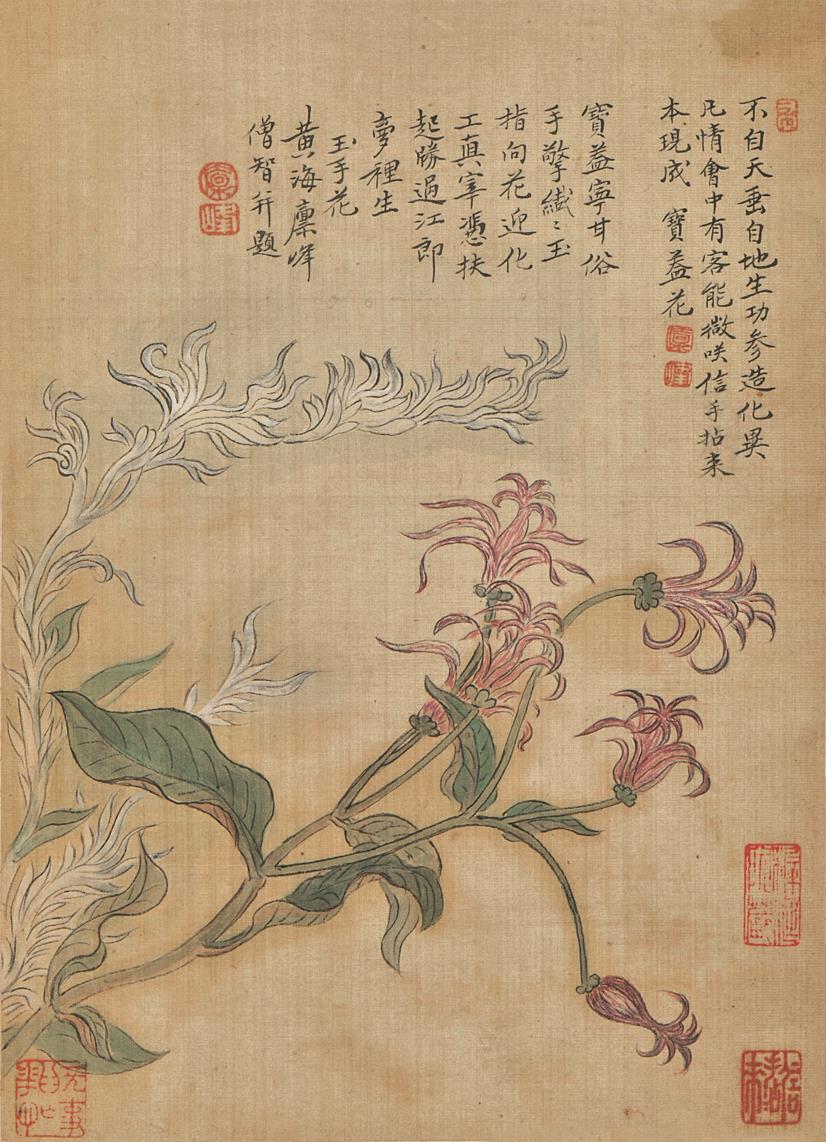 不自天垂自地生功參造化異
凡情會中有客能微咲信手拈来
本現成 寶葢花
寶葢寧甘俗
手擎纎〻玉
指向花迎化
工真宰憑扶
起勝過江郎
夢裡生
玉手花
黃海廪峰
僧智幷題